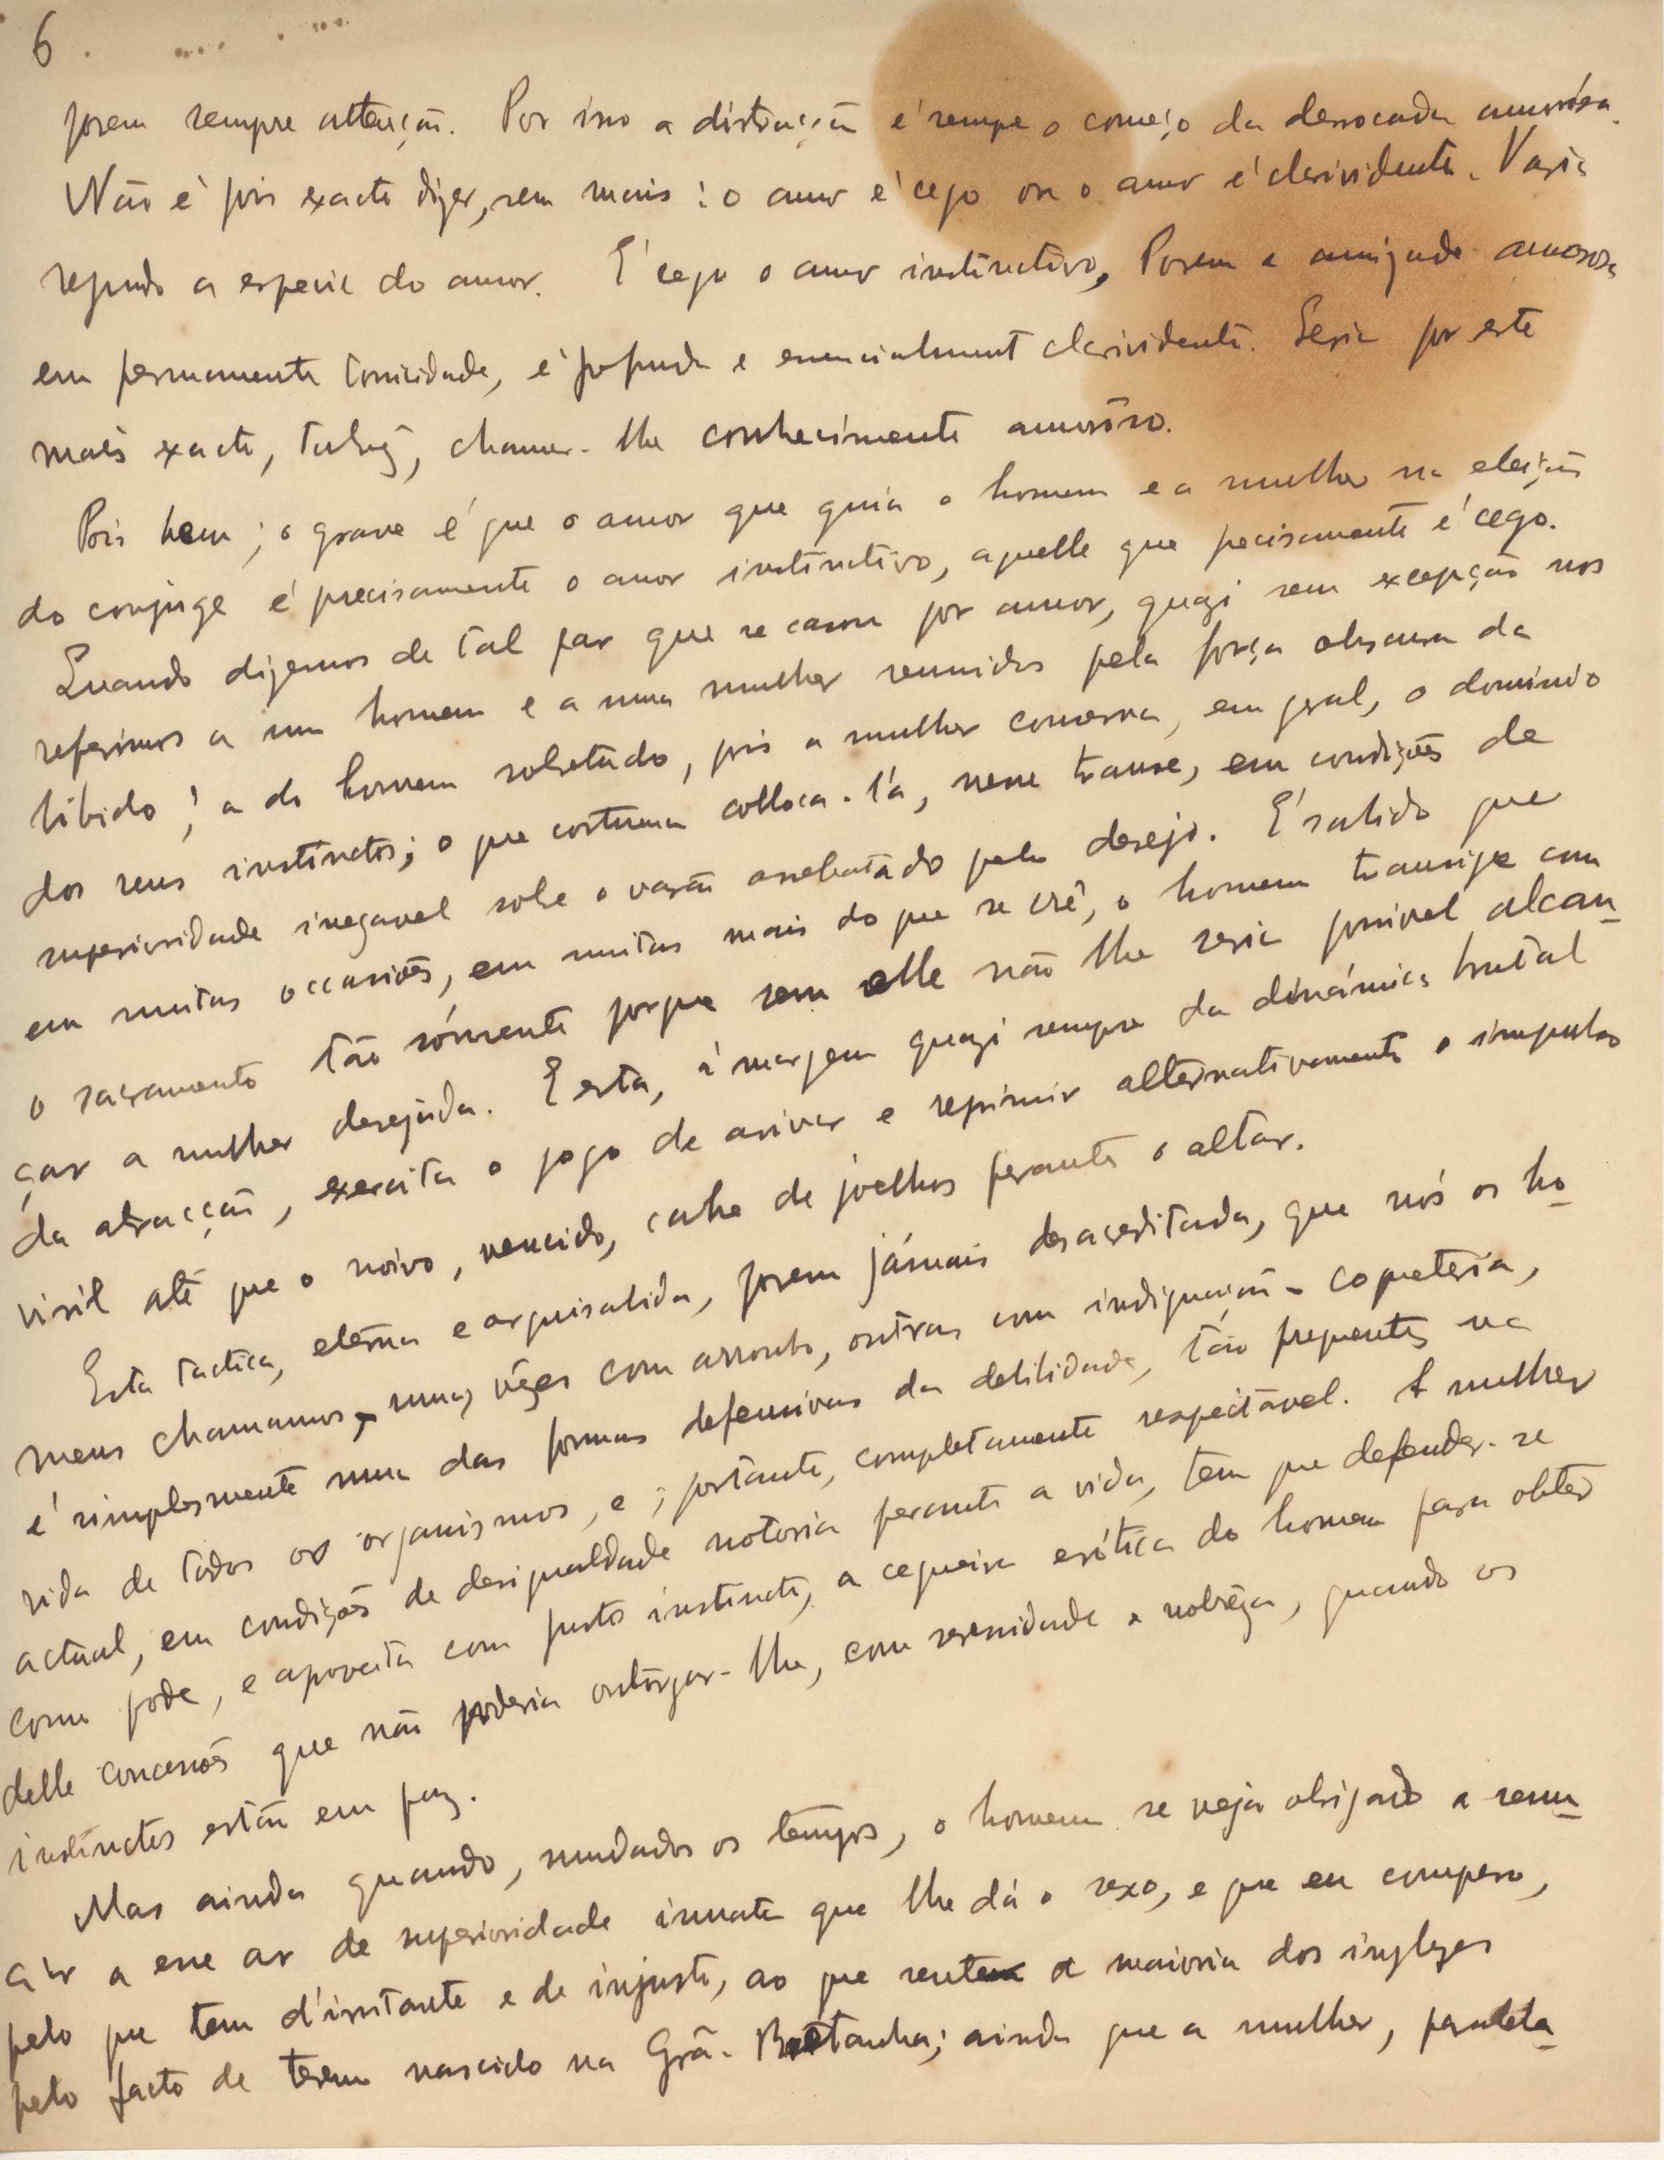 6.
porem sempre attenção. Por isso a distracção é sempre o começo da derrocada amorósa.
Não é pois exacto dizer, sem mais: o amor é cego ou o amor é clarividente. Varia
segundo a especie do amor. É cego o amor instinctivo. Porem a amizade amorosa,
em permanente tonicidade, é profunda e essencialmente clarividente. Seria por este
mais exacto, talvez, chamar-lhe conhecimento amorôso.
Pois bem; o grave é que o amor que guia o homem e a mulher na eleição
do conjuge é precisamente o amor instinctivo, aquelle que precisamente é cego.
Quando dizemos de tal par que se casou por amor, quazi sem excepção nos
referimos a um homem e a uma mulher reunidos pela força obscura da
libido; a do homem sobretudo, pois a mulher conserva, em geral, o dominio
dos seus instinctos; o que costuma colloca-la, nesse transe, em condições de
superioridade inegavel sobre o varão arrebatado pelo desejo. É sabido que
em muitas occasiões, em muitas mais do que se crê, o homem transige com
o sacramento tão sómente porque sem elle não lhe seria possivel alcan-
çar a mulher desejada. E esta, á margem quazi sempre da dinámica brutal
da atracção, exercita o jogo de avivar e reprimir alternativamente o impulso
viril até que o noivo, vencido, cahe de joelhos perante o altar.
Esta tactica, eterna e arquisabida, porem jámais desacreditada, que nós os ho-
mens chamamos, umas vêzes com assombro, outras com indignação - coqueteria,
é simplesmente uma das formas defensivas da debilidade, tão frequentes na
vida de todos os organismos, e, portanto, completamente respeitável. A mulher
actual, em condições de desigualdade notoria perante a vida, tem que defender-se
como póde, e aproveita com justo instincto, a cegueira erótica do homem para obter
delle concessões que não poderia outorgar-lhe, com serenidade e nobrêza, quando os
instinctos estão em paz.
Mas ainda quando, mudados os tempos, o homem se veja obrigado a renun-
ciar a esse ar de superioridade innata que lhe dá o sexo, e que eu comparo,
pelo que tem d'irritante e de injusto, ao que sente a maioria dos inglezes
pelo facto de terem nascido na Grã-Bretanha; ainda que a mulher,